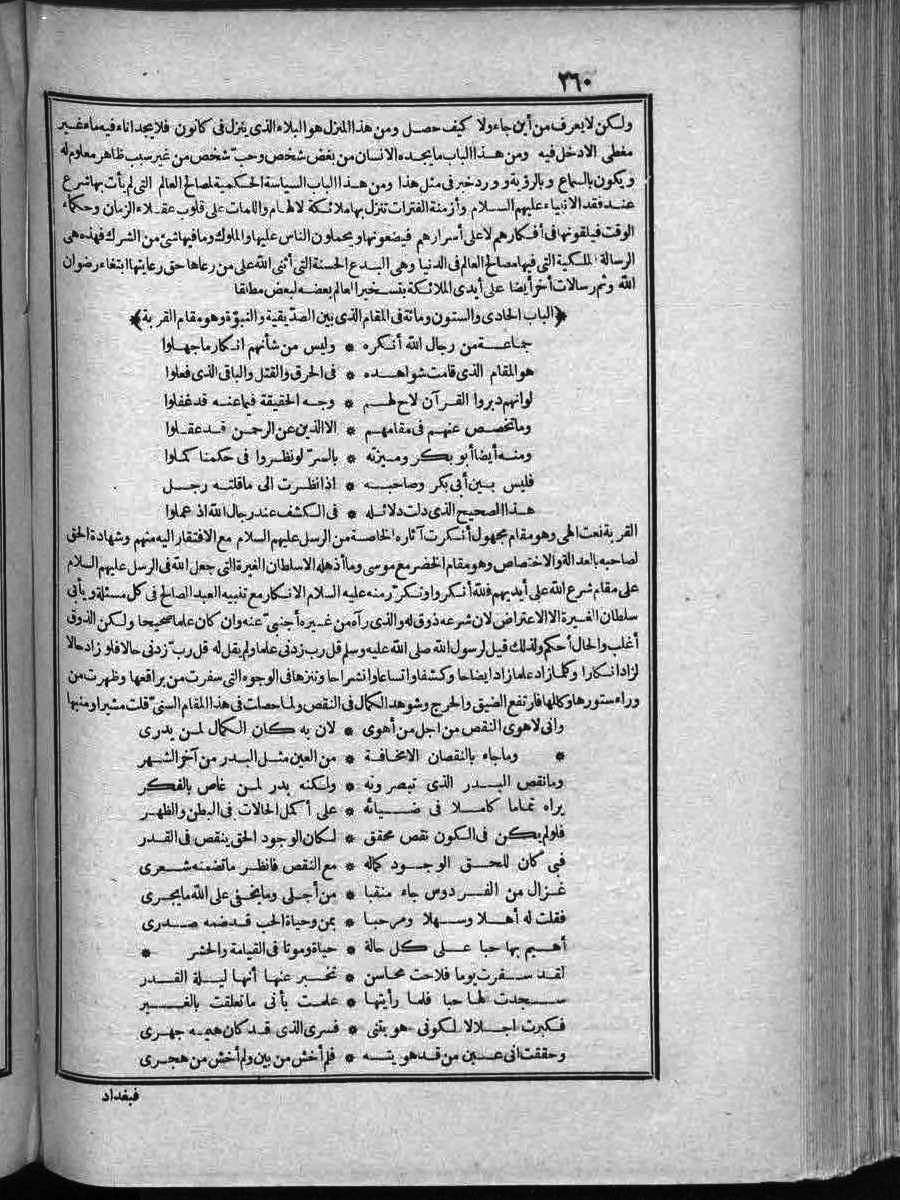 ٢٦٠
ولكن لا يعرف من أين جاء ولا كيف حصل ومن هذا المنزل هو البلاء الذى ينزل فى كانون فلا يجد اناء فيه ماء غير
مغطى الا دخل فيه ومن هذا الباب ما يجده الانسان من بغض شخص وحب شخص من غير سبب ظاهر معلوم له
ويكون بالسماع وبالرؤية وورد خبر فى مثل هذا ومن هذا الباب السياسة الحكمية لمصالح العالم التى لم يأت بها شرع
عند فقد الانبياء عليهم السلام وأزمنة الفترات تنزل بها ملائكة الالهام واللمات على قلوب عقلاء الزمان وحكماء
الوقت فيلقونها فى أفكارهم لا على أسرارهم فيضعونها ويحملون الناس عليها والملوك وما فيها شئ من الشرك فهذه هى
الرسالة الملكية التى فيها مصالح العالم فى الدنيا وهى البدع الحسنة التى أثنى الله على من رعاها حق رعايتها ابتغاء رضوان
الله وثم رسالات أخر أيضا على أيدى الملائكة بتسخير العالم بعضه لبعض مطلقا
﴿الباب الحادى والستون ومائة فى المقام الذى بين الصديقية والنبوّة وهو مقام القربة﴾
جماعة من رجال الله أنكره * وليس من شأنهم انكار ما جهلوا
هو المقام الذى قامت شواهده * فى الخرق والقتل والباقى الذى فعلوا
لو انهم دبروا القرآن لاح لهم * وجه الحقيقة فيما عنه قد غفلوا
وما تخصص عنهم فى مقامهم * الا الذين عن الرحمن قد عقلوا
ومنه أيضا أبو بكر وميزته * بالسرّ لو نظروا فى حكمنا كملوا
فليس بين أبى بكر وصاحبه * اذا نظرت الى ما قلته رجل
هذا الصحيح الذى دلت دلائله * فى الكشف عند رجال الله اذ عملوا
القربة نعت الهى وهو مقام مجهول أنكرت آثاره الخاصة من الرسل عليهم السلام مع الافتقار اليه منهم وشهادة الحق
لصاحبه بالعدالة والاختصاص وهو مقام الخضر مع موسى وما أذهله الا سلطان الغيرة التى جعل الله فى الرسل عليهم السلام
على مقام شرع الله على أيديهم فلله أنكروا وتكرّر منه عليه السلام الانكار مع تنبيه العبد الصالح فى كل مسئلة ويأبى
سلطان الغيرة الا الاعتراض لان شرعه ذوق له والذى رآه من غيره أجنبى عنه وان كان علما صحيحا ولكن الذوق
أغلب والحال أحكم ولذلك قيل لرسول الله صلى الله عليه وسلم قل رب زدنى علما ولم يقل له قل ربّ زدنى حالا فلو زاد حالا
لزاد انكارا وكلما زاد علما زاد ايضاحا وكشفا واتساعا وانشراحا وتنزها فى الوجوه التى سفرت من براقعها وظهرت من
وراء ستورها وكللها فارتفع الضيق والحرج وشوهد الكمال فى النقص ولما حصلت فى هذا المقام السنىّ قلت مشيرا ومنبها
وانى لاهوى النقص من اجل من أهوى * لان به كان الكمال لمن يدرى
* وما جاء بالنقصان الا مخافة * من العين مثل البدر من آخر الشهر
وما نقص البدر الذى تبصرونه * ولكنه بدر لمن غاص بالفكر
يراه تماما كاملا فى ضيائه * على أكمل الحالات فى البطن والظهر
فلو لم يكن فى الكون نقص محقق * لكان الوجود الحق ينقص فى القدر
فبى كان للحق الوجود كماله * مع النقص فانظر ما تضمنه شعرى
غزال من الفردوس جاء منقبا * من أجلى وما يخفى على الله ما يجرى
فقلت له أهلا وسهلا ومرحبا * بمن وحياة الحب قد ضمه صدرى
أهيم بها حبا على كل حالة * حياة وموتا فى القيامة والحشر *
لقد سفرت يوما فلاحت محاسن * تخبر عنها أنها ليلة القدر
سجدت لها حبا فلما رأيتها * علمت بأنى ما تعلقت بالغير
فكبرت اجلالا لكونى هويتى * فسرى الذى قد كان هيمه جهرى
وحققت انى عين من قد هويته * فلم أخش من بين ولم أخش من هجرى
فبغداد